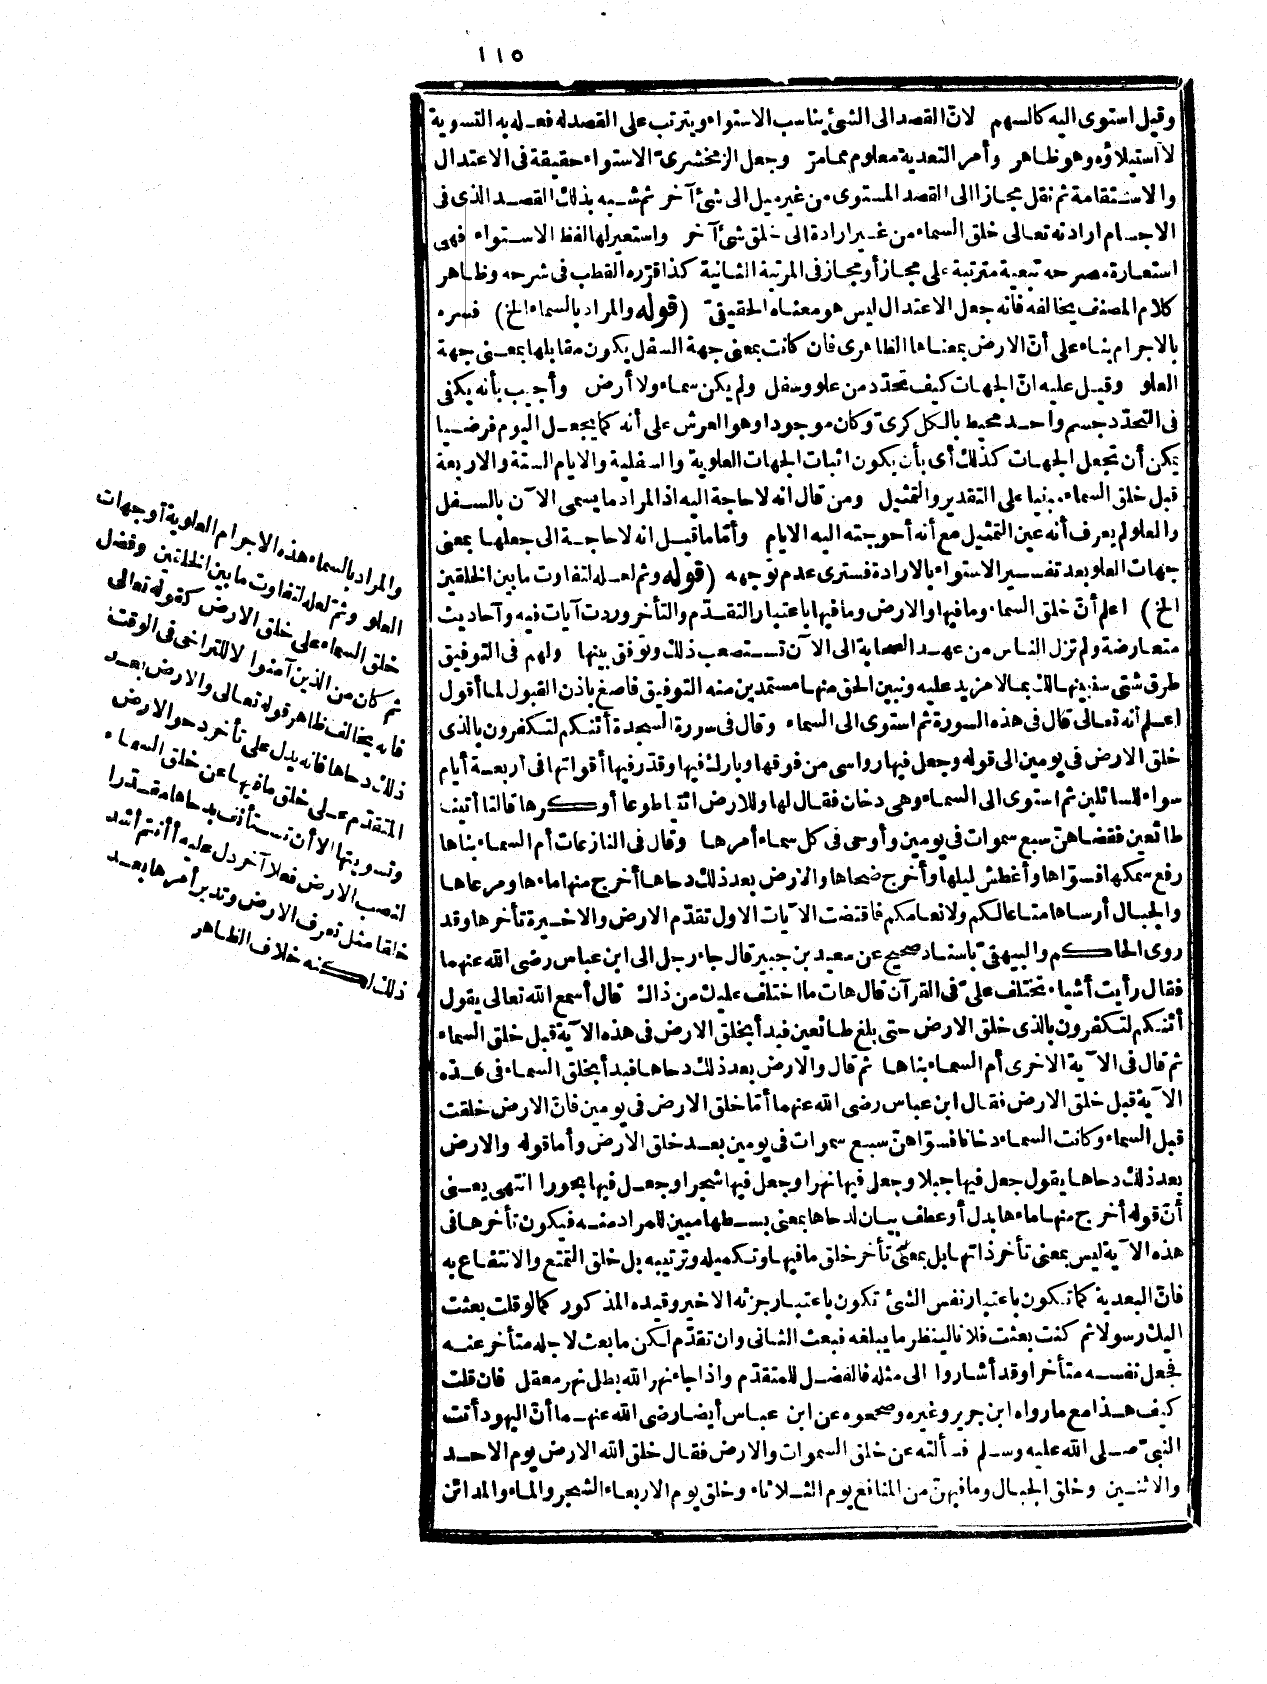 ١١٥
وقيل استوى اليه كالسهم لانّ القصد الى الشئ يناسب الاستواء ويترتب على القصد له فعله به التسوية
لا استيلاؤه وهو ظاهر وأمر التعدية معلوم مما مرّ وجعل الزمخشرىّ الاستواء حقيقة فى الاعتدال
والاستقامة ثم نقل مجازا الى القصد المستوى من غير ميل الى شئ آخر ثم شبه بذلك القصد الذى فى
الاجسام ارادته تعالى خلق السماء من غير ارادة الى خلق شئ آخر واستعير لها لفظ الاستواء فهى
استعارة مصرحه تبعية مترتبة على مجاز أو مجاز فى المرتبة الثانية كذا قرّره القطب فى شرحه وظاهر
كلام المصنف يخالفه فانه جعل الاعتدال ليس هو معناه الحقيقىّ (قوله والمراد بالسماء الخ) فسره
بالاجرام بناء على أنّ الارض بمعناها الظاهرى فان كانت بمعنى جهة السفل يكون مقابلها بمعنى جهة
العلو وقيل عليه انّ الجهات كيف تحدّد من علو وسفل ولم يكن سماء ولا أرض وأجيب بأنه يكفى
فى التحدّد جسم واحد محيط بالكل كرىّ وكان موجودا وهو العرش على أنه كما يجعل اليوم فرضيا
يمكن أن تجعل الجهات كذلك أى بأن يكون اثبات الجهات العلوية والسفلية والايام الستة والاربعة
قبل خلق السماء مبنيا على التقدير والتمثيل ومن قال انه لا حاجة اليه اذ المراد ما يسمى الآن بالسفل
والعلو لم يعرف أنه عين التمثيل مع أنه أحوجته اليه الايام وأمّا ما قيل انه لا حاجة الى جعلها بمعنى
جهات العلو بعد تفسير الاستواء بالارادة فسترى عدم توجهه (قوله وثم لعله لتفاوت ما بين الخلقين
الخ) اعلم أنّ خلق السماء وما فيها والارض وما فيها باعتبار التقدّم والتأخر وردت آيات فيه وأحاديث
متعارضة ولم تزل الناس من عهد الصحابة الى الآن تستصعب ذلك وتوفق بينها ولهم فى التوفيق
طرق شتى سنبينها لك بما لا مزيد عليه ونبين الحق منها مستمدين منه التوفيق فاصغ باذن القبول لما أقول
اعلم أنه تعالى قال فى هذه السورة ثم استوى الى السماء وقال فى سورة السجدة أئنكم لتكفرون بالذى
خلق الارض فى يومين الى قوله وجعل فيها رواسى من فوقها وبارك فيها وقدّر فيها أقواتها فى أربعة أيام
سواء للسائلين ثم استوى الى السماء وهى دخان فقال لها وللارض ائتيا طوعا أو كرها قالتا أتينا
طائعين فقضاهنّ سبع سموات فى يومين وأوحى فى كل سماء أمرها وقال فى النازعات أم السماء بناها
رفع سمكها فسوّاها وأغطش ليلها وأخرج ضحاها والارض بعد ذلك دحاها أخرج منها ماءها ومرعاها
والجبال أرساها متاعا لكم ولانعامكم فاقتضت الآيات الاول تقدّم الارض والاخيرة تأخرها وقد
روى الحاكم والبيهقىّ باسناد صحيح عن سعيد بن جبير قال جاء رجل الى ابن عباس رضى الله عنهما
فقال رأيت أشياء تختلف علىّ فى القرآن قال هات ما اختلف عليك من ذلك قال أسمع الله تعالى يقول
أئنكم لتكفرون بالذى خلق الارض حتى بلغ طائعين فبدأ بخلق الارض فى هذه الآية قبل خلق السماء
ثم قال فى الآية الاخرى أم السماء بناها ثم قال والارض بعد ذلك دحاها فبدأ بخلق السماء فى هذه
الآية قبل خلق الارض فقال ابن عباس رضى الله عنهما أمّا خلق الارض فى يومين فانّ الارض خلقت
قبل السماء وكانت السماء دخانا فسوّاهنّ سبع سموات فى يومين بعد خلق الارض وأما قوله والارض
بعد ذلك دحاها يقول جعل فيها جبلا وجعل فيها نهرا وجعل فيها شجرا وجعل فيها بحورا انتهى يعنى
أنّ قوله أخرج منها ماءها بدل أو عطف بيان لدحاها بمعنى بسطها مبين للمراد منه فيكون تأخرها فى
هذه الآية ليس بمعنى تأخر ذاتها بل بمعنى تأخر خلق ما فيها وتكميله وترتيبه بل خلق التمتع والانتفاع به
فانّ البعدية كما تكون باعتبار نفس الشئ تكون باعتبار جزئه الاخير وقيده المذكور كما لو قلت بعثت
اليك رسولا ثم كنت بعثت فلانا لينظر ما يبلغه فبعث الثانى وان تقدّم لكن ما بعث لاجله متأخر عنه
فجعل نفسه متأخرا وقد أشاروا الى مثله فالفضل للمتقدّم واذا جاء نهر الله بطل نهر معقل فان قلت
كيف هذا مع ما رواه ابن جرير وغيره وصححوه عن ابن عباس أيضا رضى الله عنهما أنّ اليهود أتت
النبىّ صلى الله عليه وسلم فسألته عن خلق السموات والارض فقال خلق الله الارض يوم الاحد
والاثنين وخلق الجبال وما فيهنّ من المنافع يوم الثلاثاء وخلق يوم الاربعاء الشجر والماء والمدائن
والمراد بالسماء هذه الاجرام العلوية أو جهات
العلو وثم لعله لتفاوت ما بين الخلقين وفضل
خلق السماء على خلق الارض كقوله تعالى
ثم كان من الذين آمنوا لا للتراخى فى الوقت
فانه يخالف ظاهر قوله تعالى والارض بعد
ذلك دحاها فانه يدل على تأخر دحو الارض
المتقدّم على خلق ما فيها عن خلق السماء
وتسويتها الا أن تستأنف بدحاها مقدرا
لنصب الارض فعلا آخر دل عليه أأنتم أشد
خلقا مثل تعرف الارض وتدبر أمرها بعد
ذلك لكنه خلاف الظاهر